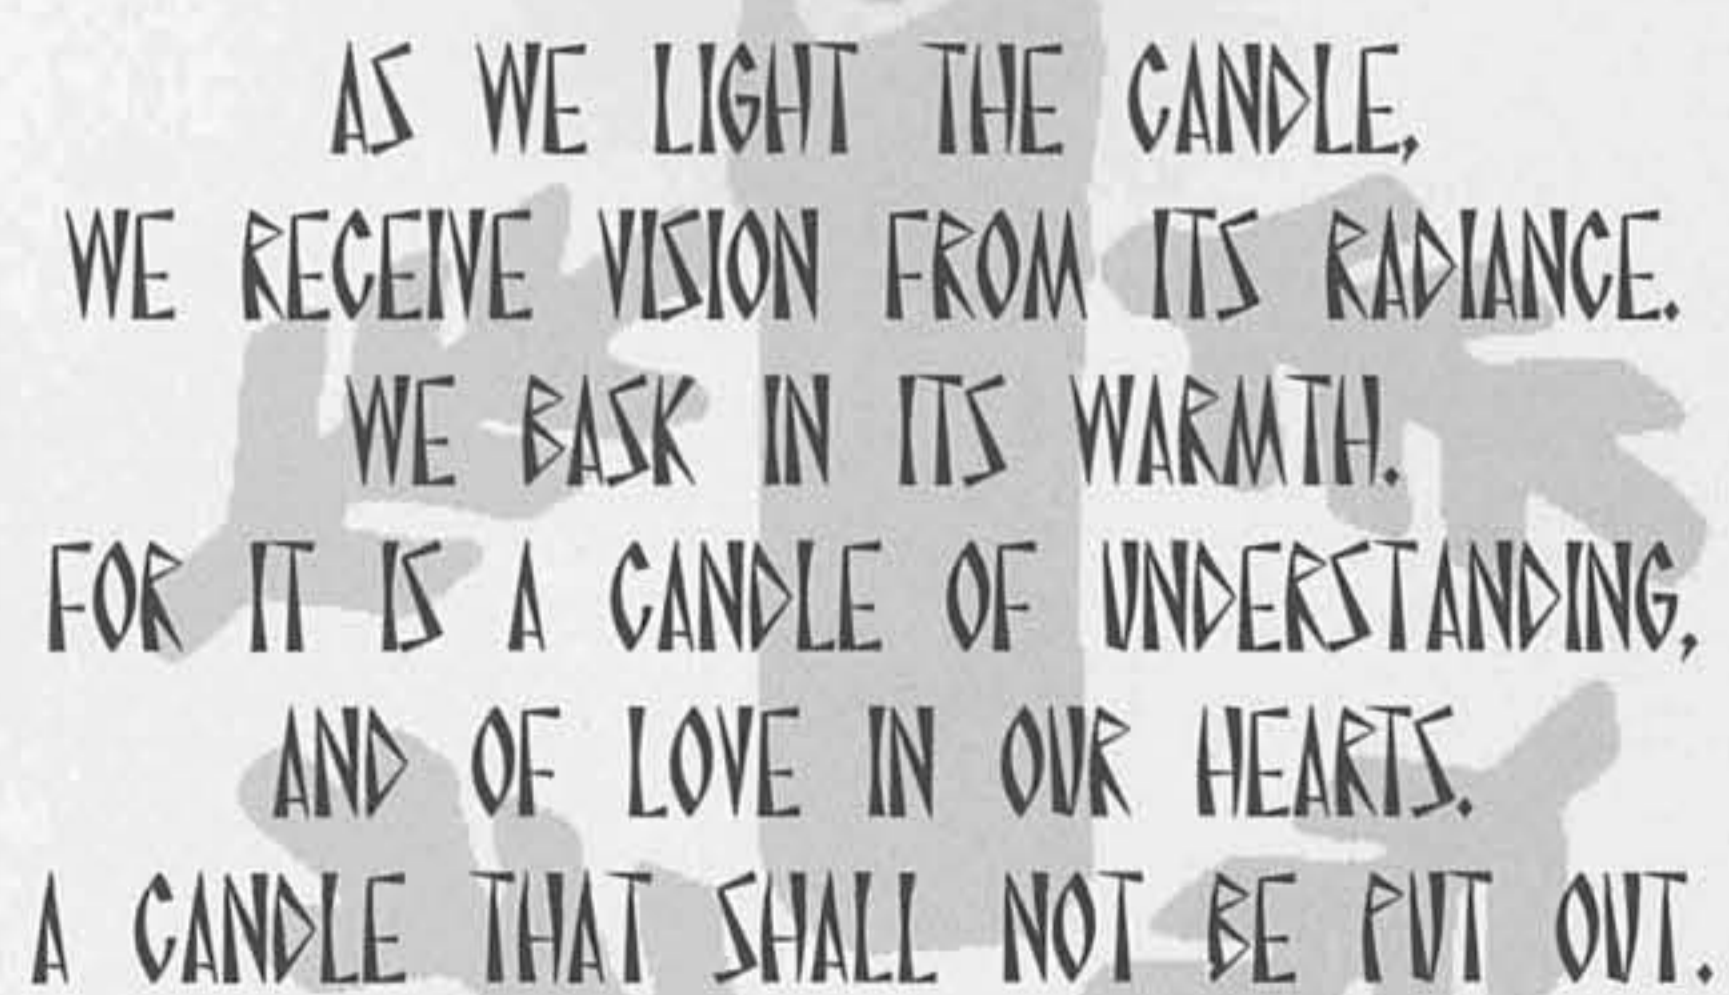 AS WE LIGHT THE CANDLE,
WE RECEIVE VISION FROM ITS RADIANCE.
WE BASK IN ITS WARMTH.
FOR IT IS A CANDLE OF UNDERSTANDING,
AND OF LOVE IN OUR HEARTS.
A CANDLE THAT SHALL NOT BE PUT OUT.